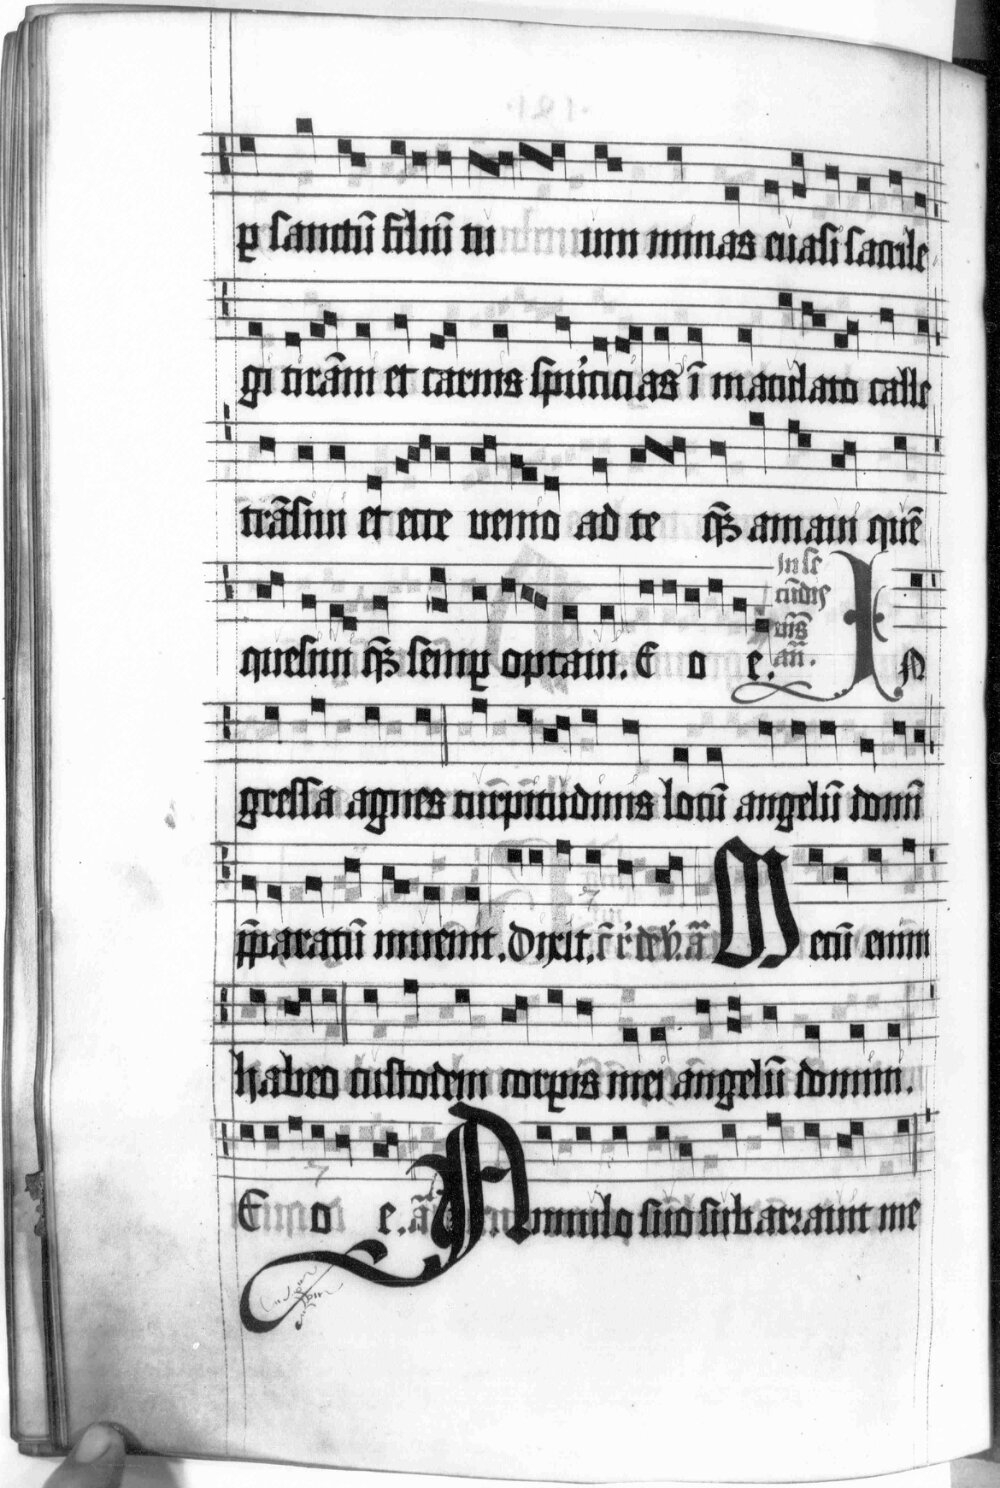 ꝑ sanctū filiū tuum minas euasi sacrile
gi tirāni et carnis spurcicias ī maculato calle
trāsiui et ecce uenio ad te quā amaui quē
quesiui quē semꝑ optaui. E o e. In secūdis uꝭ̄s an̄. IN
gressa agnes turpitudinis locū angelū domī
p̄paratū inuenit. Dixit. añ Mecū enim
habeo custodem corporis mei angelū domini.
E o e. añ Annulo suo subarrauit me